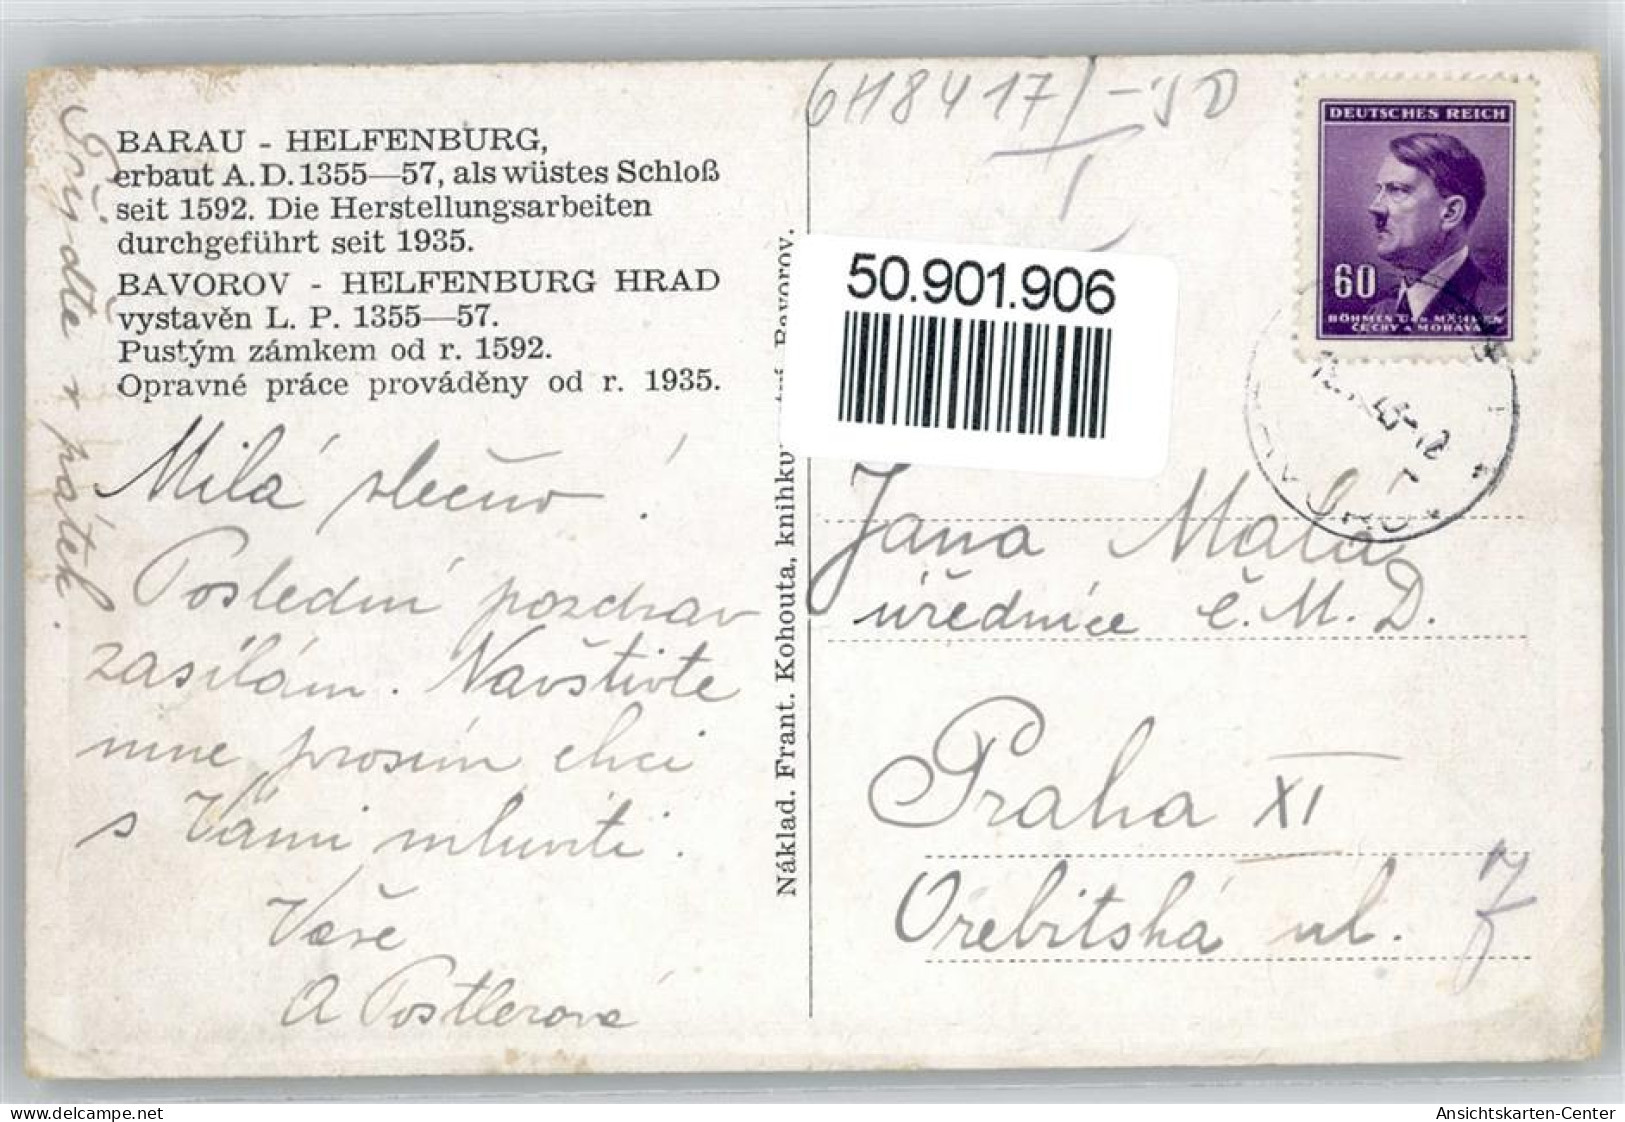 BARAU - HELFENBURG,
erbaut A.D. 1355—57, als wüstes Schloß
seit 1592. Die Herstellungsarbeiten
durchgeführt seit 1935.
BAVOROV - HELFENBURG HRAD
vystavěn L. P. 1355—57.
Pustým zámkem od r. 1592.
Opravné práce prováděny od r. 1935.
Milá slečno!
Poslední pozdrav
zasílám. Navštivte
mne prosím chci
s Vámi mluviti.
Vaše
A Postlerová
Přijdte v pátek.
Náklad. Frant. Kohouta, Bavorov.
50.901.906
DEUTSCHES REICH
60
BÖHMEN UND MÄHREN
ČECHY A MORAVA
Jana Malá
úřednice Č.M.D.
Praha XI
Orebitská ul. 7
Ansichtskarten-Center